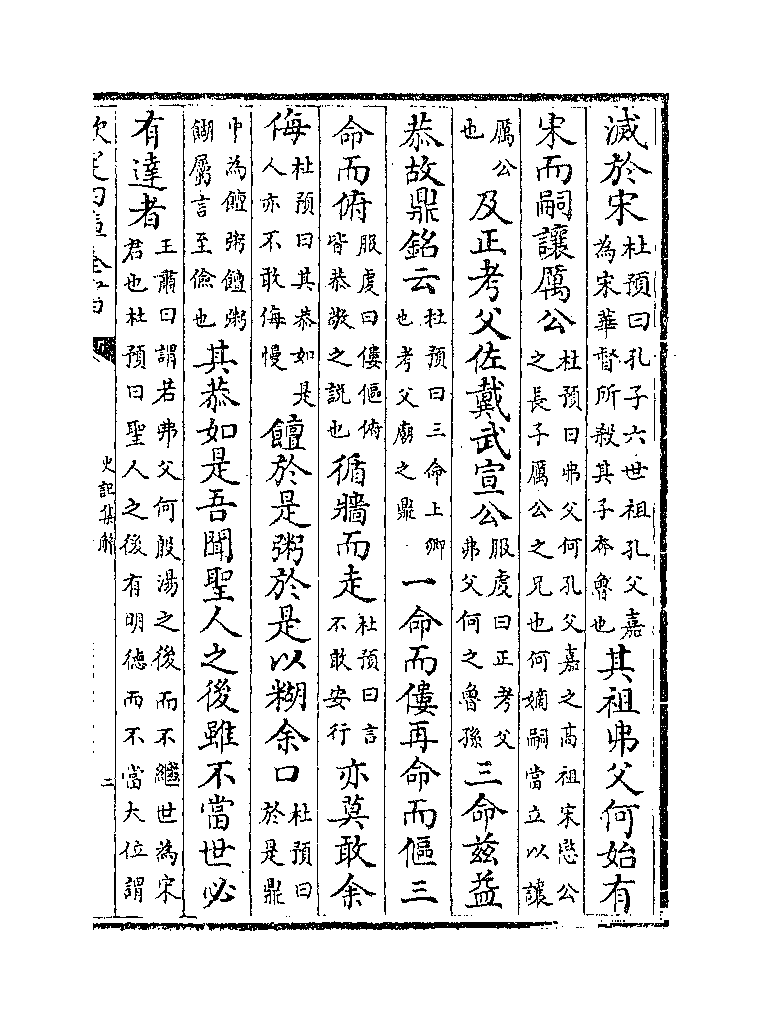 滅於宋杜預曰孔子六世祖孔父嘉為宋華督所殺其子奔魯也其祖弗父何始有
宋而嗣讓厲公杜預曰弗父何孔父嘉之高祖宋愍公之長子厲公之兄也何嫡嗣當立以讓
厲公也及正考父佐戴武宣公服虔曰正考父弗父何之魯孫三命兹益
恭故鼎銘云杜預曰三命上卿也考父廟之鼎一命而僂再命而傴三
命而俯服虔曰僂傴俯皆恭敬之説也循牆而走杜預曰言不敢安行亦莫敢余
侮杜預曰其恭如是人亦不敢侮慢饘於是粥於是以糊余口杜預曰於是鼎
中為饘粥饘粥餬屬言至儉也其恭如是吾聞聖人之後雖不當世必
有達者王肅曰謂若弗父何殷湯之後而不繼世為宋君也杜預曰聖人之後有明德而不當大位謂
史記集解
二